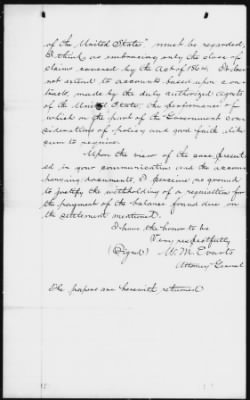 of the United States" must be regarded,
I think, as embracing only the class of
claims covered by the Act of 1864. It does
not extend to accounts based upon con-
tracts, made by the duly authorized agents
of the United States, the performance of
which on the part of the Government con-
siderations of policy and good faith alike
seem to require.
Upon the view of the case present-
ed in your communication and the accom-
panying documents, I perceive no ground
to justify the withholding of a requisition for
the payment of the balance found due on
the settlement mentioned.
I have the honor to be
Very respectfully
(Signed) Wm. M. Evarts
Attorney General
The papers are herewith returned